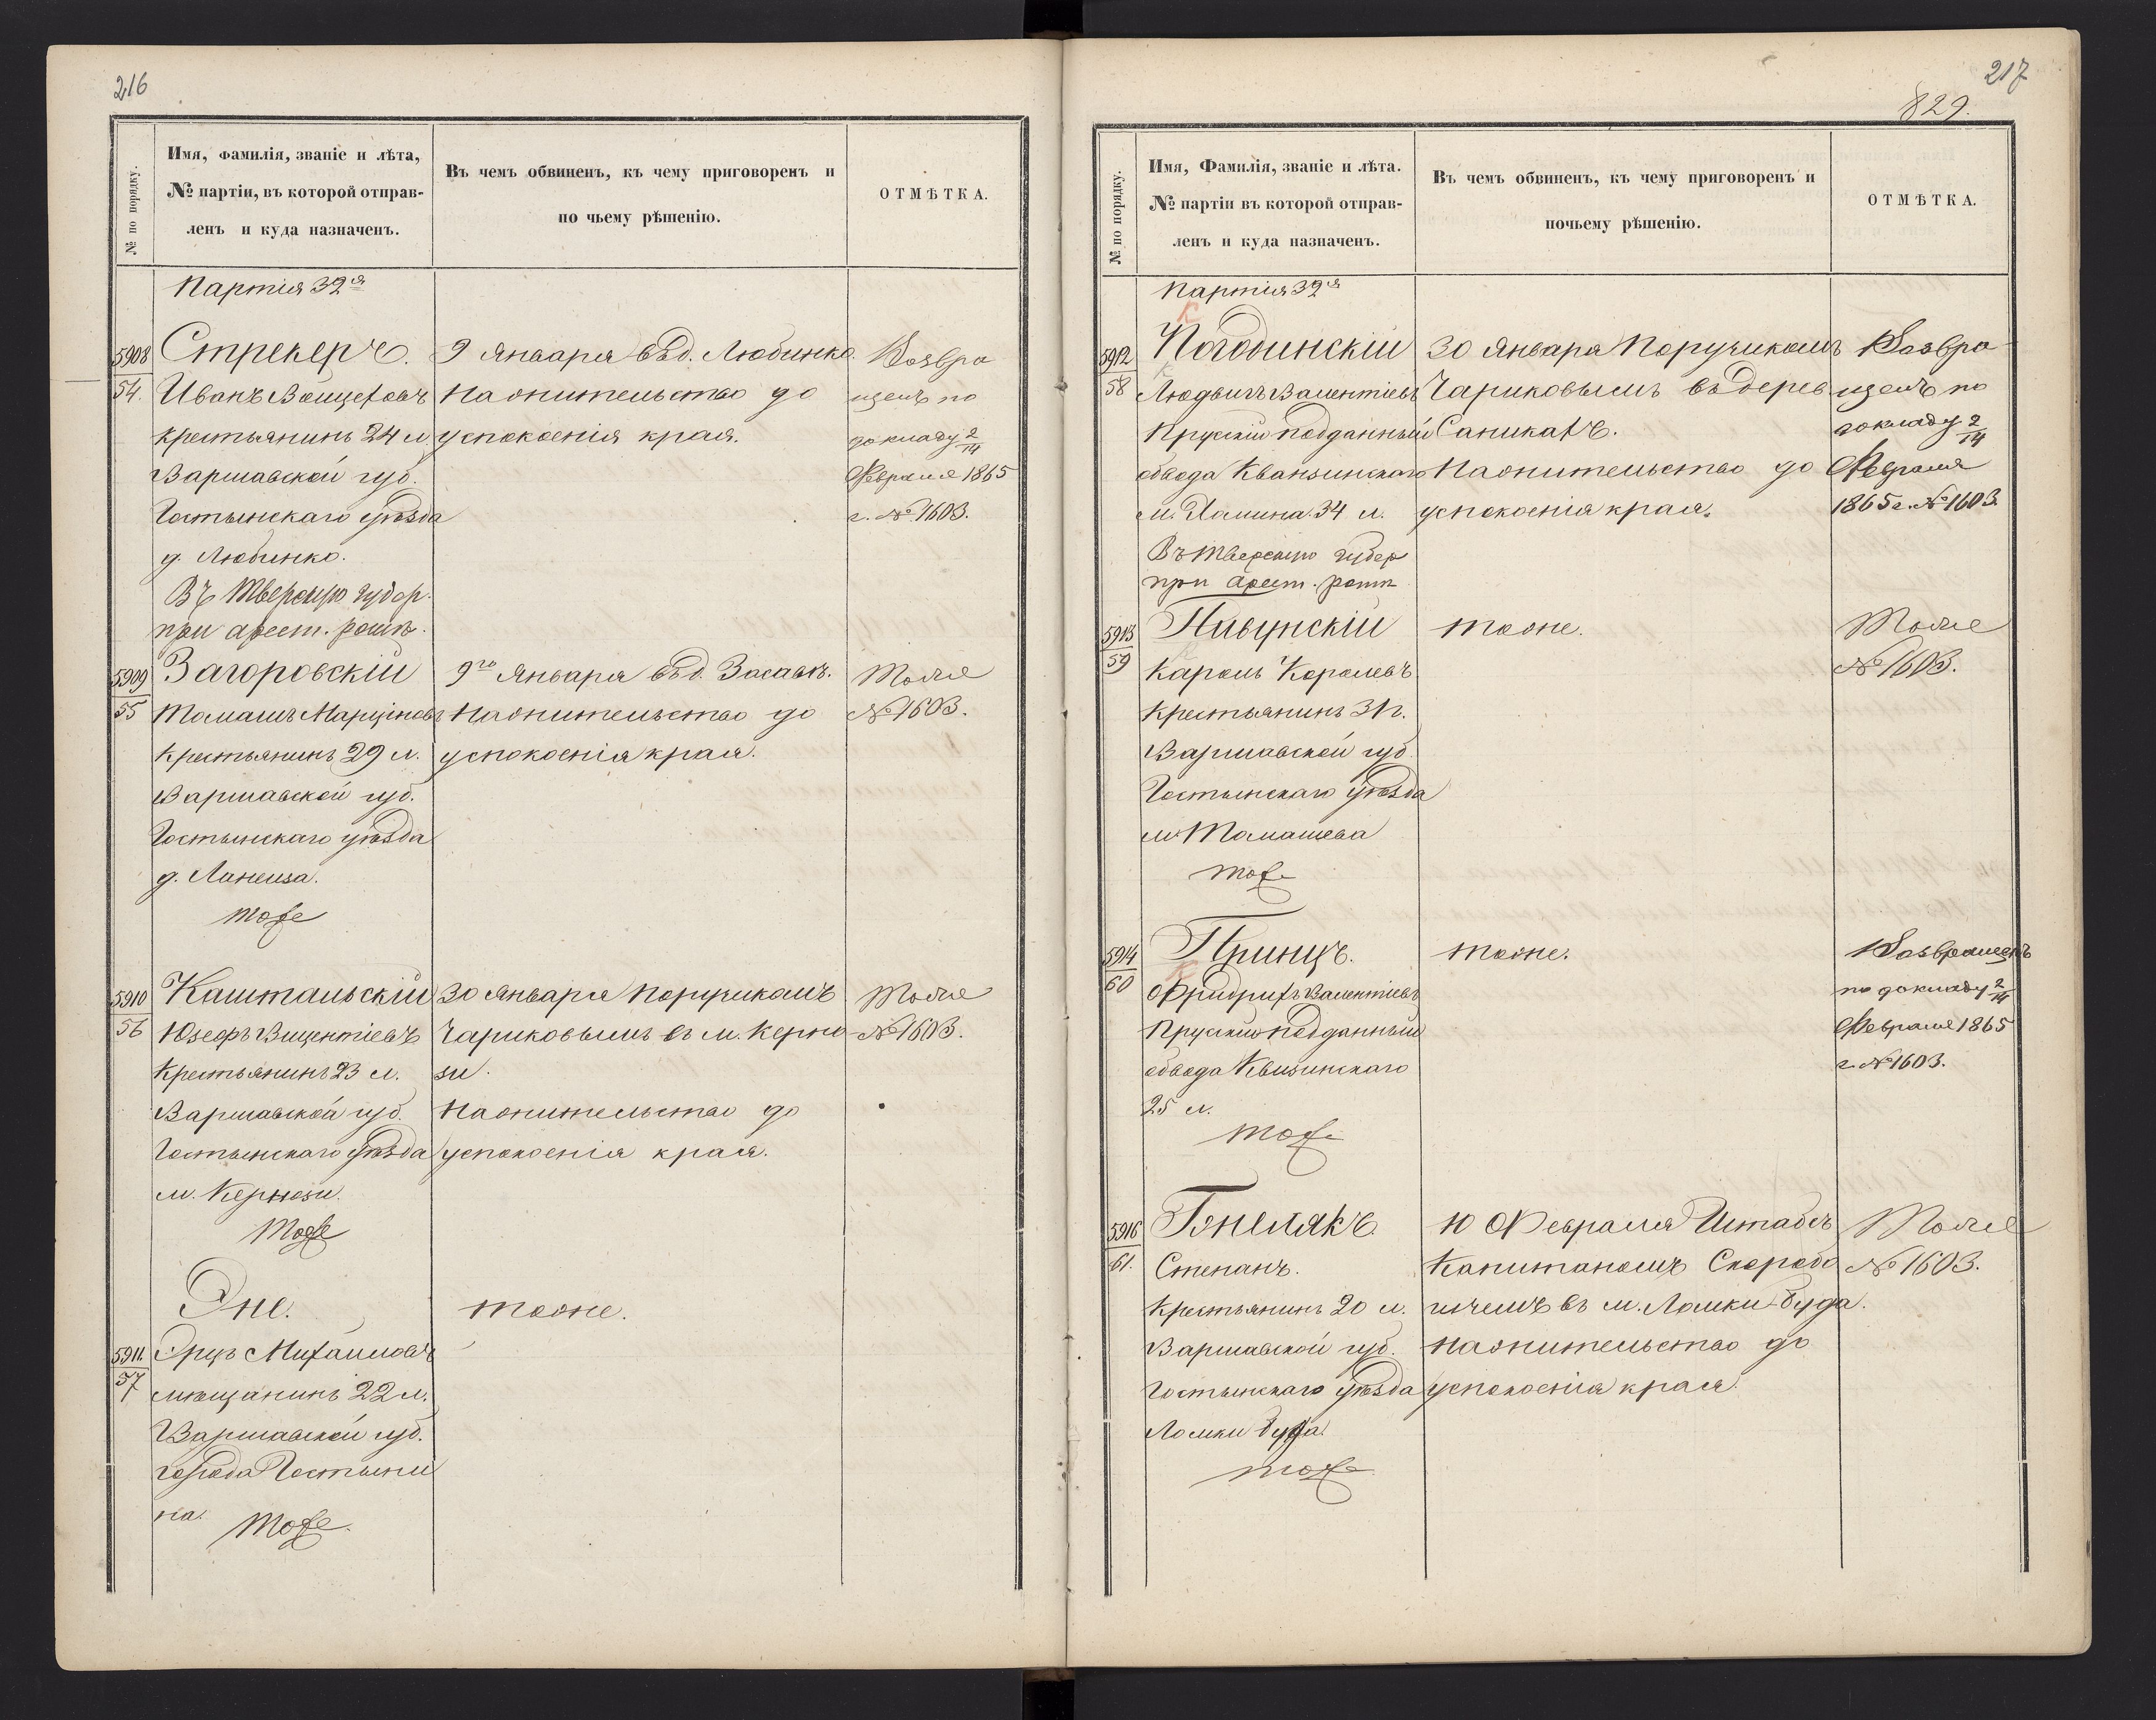 216
№ по порядку.
Имя, фамилія, званіе и лѣта,
№ партіи, въ которой отправ-
ленъ и куда назначенъ.
Въ чемъ обвиненъ, къ чему приговоренъ и
по чьему рѣшенію.
ОТМѢТКА.
Партія 32я
5908
54.
Стрекеръ.
Иванъ Войцеховъ
крестьянинъ 24 л.
Варшавской губ.
Гостынскаго уѣзда
д. Любинко.
Въ Тверскую губер.
при арест. ротѣ.
9 Января въ д. Любинко
На жительство до
успокоенія края.
Возвра
щенъ по
докладу 2/14
Февраля 1865
г. № 1603.
5909
55
Загоровскій
Томашъ Марціновъ
крестьянинъ 29 л.
Варшавской губ.
Гостынскаго уѣзда
д.
тоже
9го Января въ д.
На жительство до
успокоенія края.
Тоже
№ 1603.
5910
56
Каштальскій
Юзефъ Вицентіевъ
Крестьянинъ 23 л.
Варшавской губ.
Гостынскаго уѣзда
м. Кернози.
Тоже
30 Января Поручикомъ
Чариковымъ въ м. Керно
зи.
На жительство до
успокоенія края.
Тоже
№ 1603.
Эне.
5911.
57
Эрцъ Михайловъ
мѣщанинъ 22 л.
Варшавской губ.
города Гостыни
на.
тоже.
тоже.
217
829.
№ по порядку.
Имя, Фамилія, званіе и лѣта.
№ партіи въ которой отправ-
ленъ и куда назначенъ.
Въ чемъ обвиненъ, къ чему приговоренъ и
почьему рѣшенію.
ОТМѢТКА.
Партія 32я
К
5912
58
Погодинскій
Людвигъ Валентіевъ
Прускій подданный
обвода
34 л.
Въ Тверскую губер
при арест. ротѣ
30 Января Поручикомъ
Чариковымъ въ дерев
Саникахъ.
На жительство до
успокоенія края.
Возвра
щенъ по
докладу 2/14
Февраля
1865 г. № 1603.
5913
59
Пивунскій
Кароль Каролевъ
Крестьянинъ 31 г.
Варшавской губ.
Гостынскаго уѣзда
м. Томашева
тоже
тоже.
Тоже
№ 1603.
5914
60
Принцъ.
К
Фридрихъ Валентіевъ
Прускій подданный
обвода
25 л.
тоже
тоже.
Возвращенъ
по докладу 2/14
Февраля 1865
г. № 1603.
5916
61.
Степанъ.
Крестьянинъ 20 л.
Варшавской губ.
Гостынскаго уѣзда
Ломки буда.
тоже
10 Февраля Штабсъ
Капитаномъ Скоробо
въ м. Ломки-буда.
На жительство до
успокоенія края.
Тоже
№ 1603.